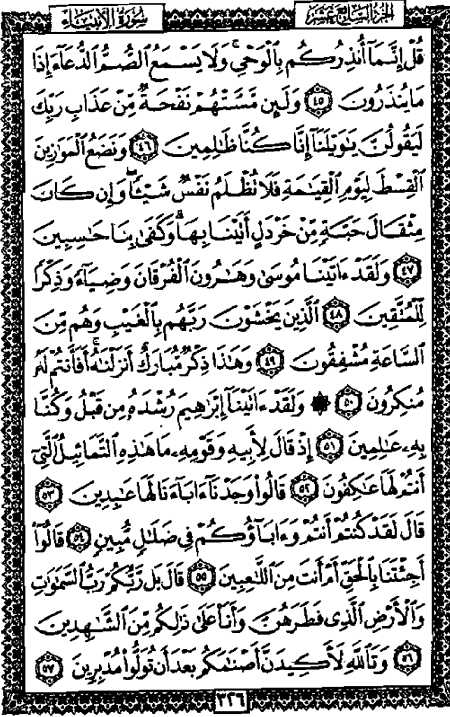 الجزء السابع عشر
سورة الأنبياء
قُلْ إِنَّمَآ أُنذِرُكُم بِٱلْوَحْىِ ۚ وَلَا يَسْمَعُ ٱلصُّمُّ ٱلدُّعَآءَ إِذَا
مَا يُنذَرُونَ ٤٥ وَلَئِن مَّسَّتْهُمْ نَفْحَةٌ مِّنْ عَذَابِ رَبِّكَ
لَيَقُولُنَّ يَٰوَيْلَنَآ إِنَّا كُنَّا ظَٰلِمِينَ ٤٦ وَنَضَعُ ٱلْمَوَٰزِينَ
ٱلْقِسْطَ لِيَوْمِ ٱلْقِيَٰمَةِ فَلَا تُظْلَمُ نَفْسٌ شَيْـًٔا ۖ وَإِن كَانَ
مِثْقَالَ حَبَّةٍ مِّنْ خَرْدَلٍ أَتَيْنَا بِهَا ۗ وَكَفَىٰ بِنَا حَٰسِبِينَ
٤٧ وَلَقَدْ ءَاتَيْنَا مُوسَىٰ وَهَٰرُونَ ٱلْفُرْقَانَ وَضِيَآءً وَذِكْرًا
لِّلْمُتَّقِينَ ٤٨ ٱلَّذِينَ يَخْشَوْنَ رَبَّهُم بِٱلْغَيْبِ وَهُم مِّنَ
ٱلسَّاعَةِ مُشْفِقُونَ ٤٩ وَهَٰذَا ذِكْرٌ مُّبَارَكٌ أَنزَلْنَٰهُ ۚ أَفَأَنتُمْ لَهُۥ
مُنكِرُونَ ٥٠ ۞ وَلَقَدْ ءَاتَيْنَآ إِبْرَٰهِيمَ رُشْدَهُۥ مِن قَبْلُ وَكُنَّا
بِهِۦ عَٰلِمِينَ ٥١ إِذْ قَالَ لِأَبِيهِ وَقَوْمِهِۦ مَا هَٰذِهِ ٱلتَّمَاثِيلُ ٱلَّتِىٓ
أَنتُمْ لَهَا عَٰكِفُونَ ٥٢ قَالُوا۟ وَجَدْنَآ ءَابَآءَنَا لَهَا عَٰبِدِينَ ٥٣
قَالَ لَقَدْ كُنتُمْ أَنتُمْ وَءَابَآؤُكُمْ فِى ضَلَٰلٍ مُّبِينٍ ٥٤ قَالُوٓا۟
أَجِئْتَنَا بِٱلْحَقِّ أَمْ أَنتَ مِنَ ٱللَّٰعِبِينَ ٥٥ قَالَ بَل رَّبُّكُمْ رَبُّ ٱلسَّمَٰوَٰتِ
وَٱلْأَرْضِ ٱلَّذِى فَطَرَهُنَّ وَأَنَا۠ عَلَىٰ ذَٰلِكُم مِّنَ ٱلشَّٰهِدِينَ
٥٦ وَتَٱللَّهِ لَأَكِيدَنَّ أَصْنَٰمَكُم بَعْدَ أَن تُوَلُّوا۟ مُدْبِرِينَ ٥٧
٣٢٦